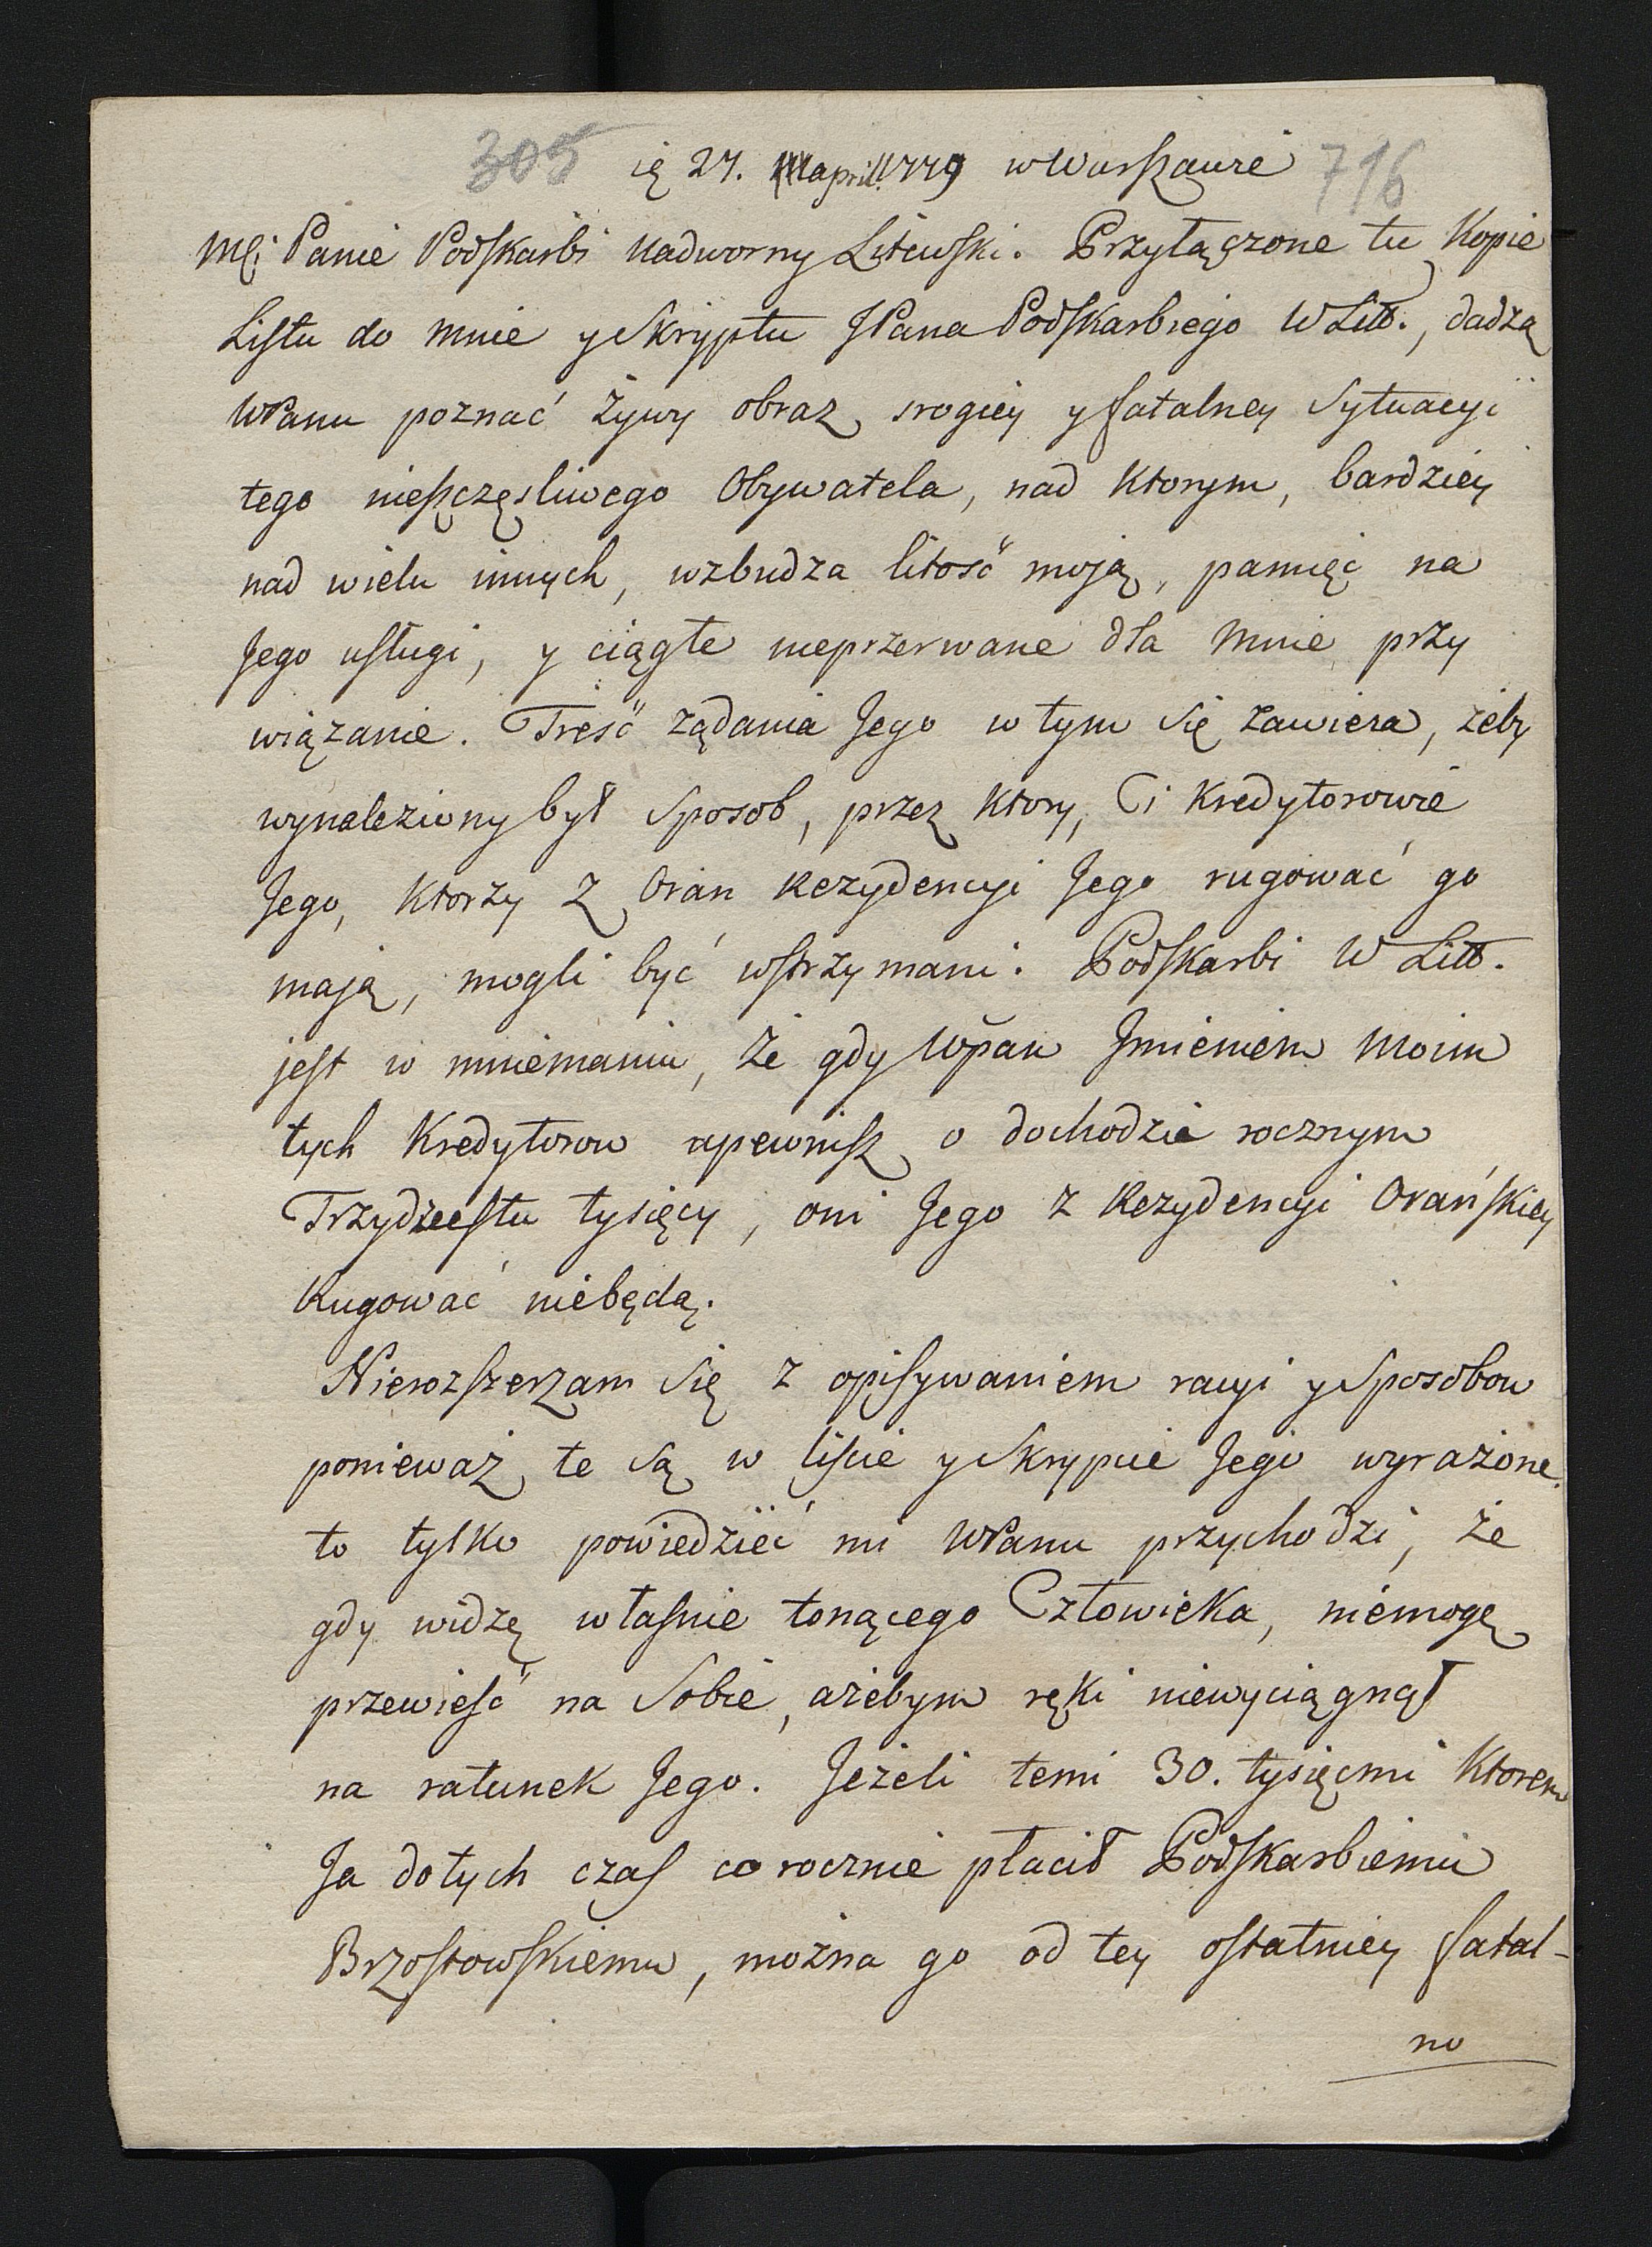 305 27. april. 1779 w Warszawie 716
Mci Panie Podskarbi Nadworny Litewski. Przyłączone tu Kopie
Listu do mnie y Skryptu JPana Podskarbiego W Litt., dadzą
WPanu poznać żywy obraz srogiey y fatalney Sytuacyi
tego nieszczęsliwego Obywatela, nad Ktorym, bardziey
nad wielu innych, wzbudza litość moją, pamięć na
Jego usługi, y ciągłe nieprzerwane dla Mnie przy
wiązanie. Treść żądania Jego w tym Się zawiera, żeby
wynaleziony był Sposob, przez Ktory, Ci Kredytorowie
Jego, Ktorzy z Oran Rezydencyi Jego rugować go
mają, mogli być wstrzymani. Podskarbi W Litt.
jest w mniemaniu, że gdy Wpan Jmieniem Moim
tych Kredytorow upewnisz o dochodzie rocznym
Trzydziestu tysięcy, oni Jego z Rezydencyi Orańskiey
Rugować niebędą.
Nierozszerzam Się z opisywaniem racyi y Sposobow
ponieważ te Są w liście y Skrypcie Jego wyrażone.
to tylko powiedzieć mi WPanu przychodzi, że
gdy widzę własnie tonącego Człowieka, niemogę
przewieść na Sobie, ażebym ręki niewyciągnął
na ratunek Jego. Jeżeli temi 30. tysięcmi Ktorem
Ja dotych czas corocznie płacił Podskarbiemu
Brzostowskiemu, można go od tey ostatniey fatal-
no